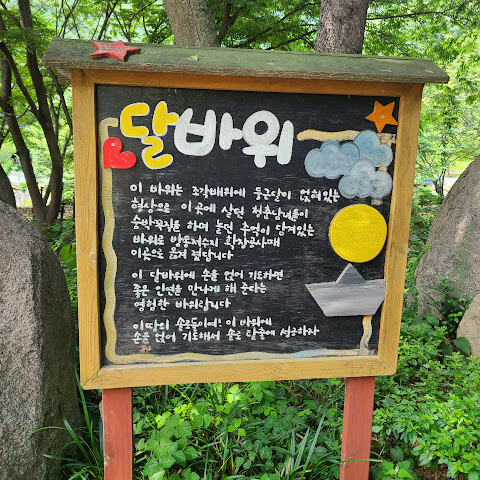 달바위
이 바위는 조각배위에 둥근달이 얹혀있는
형상으로 이곳에 살던 청춘남녀들이
숨바꼭질을 하며 놀던 추억이 담겨있는
바위로 방동저수지 확장공사때
이곳으로 옮겨 졌답니다
이 달바위에 손을 얹어 기도하면
좋은 인연을 만나게 해 준다는
영험한 바위랍니다
이땅의 솔로들이여! 이 바위에
손을 얹어 기도해서 솔로 탈출에 성공하자